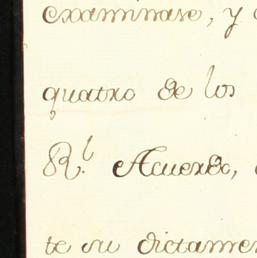 examinase, y
quatro de los
R.l Acuerdo,
te su dictamen